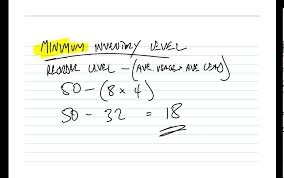 MINIMUM INVENTORY LEVEL
REORDER LEVEL - (AVE USAGE × AVE LEAD)
50 - (8 × 4)
50 - 32 = 18